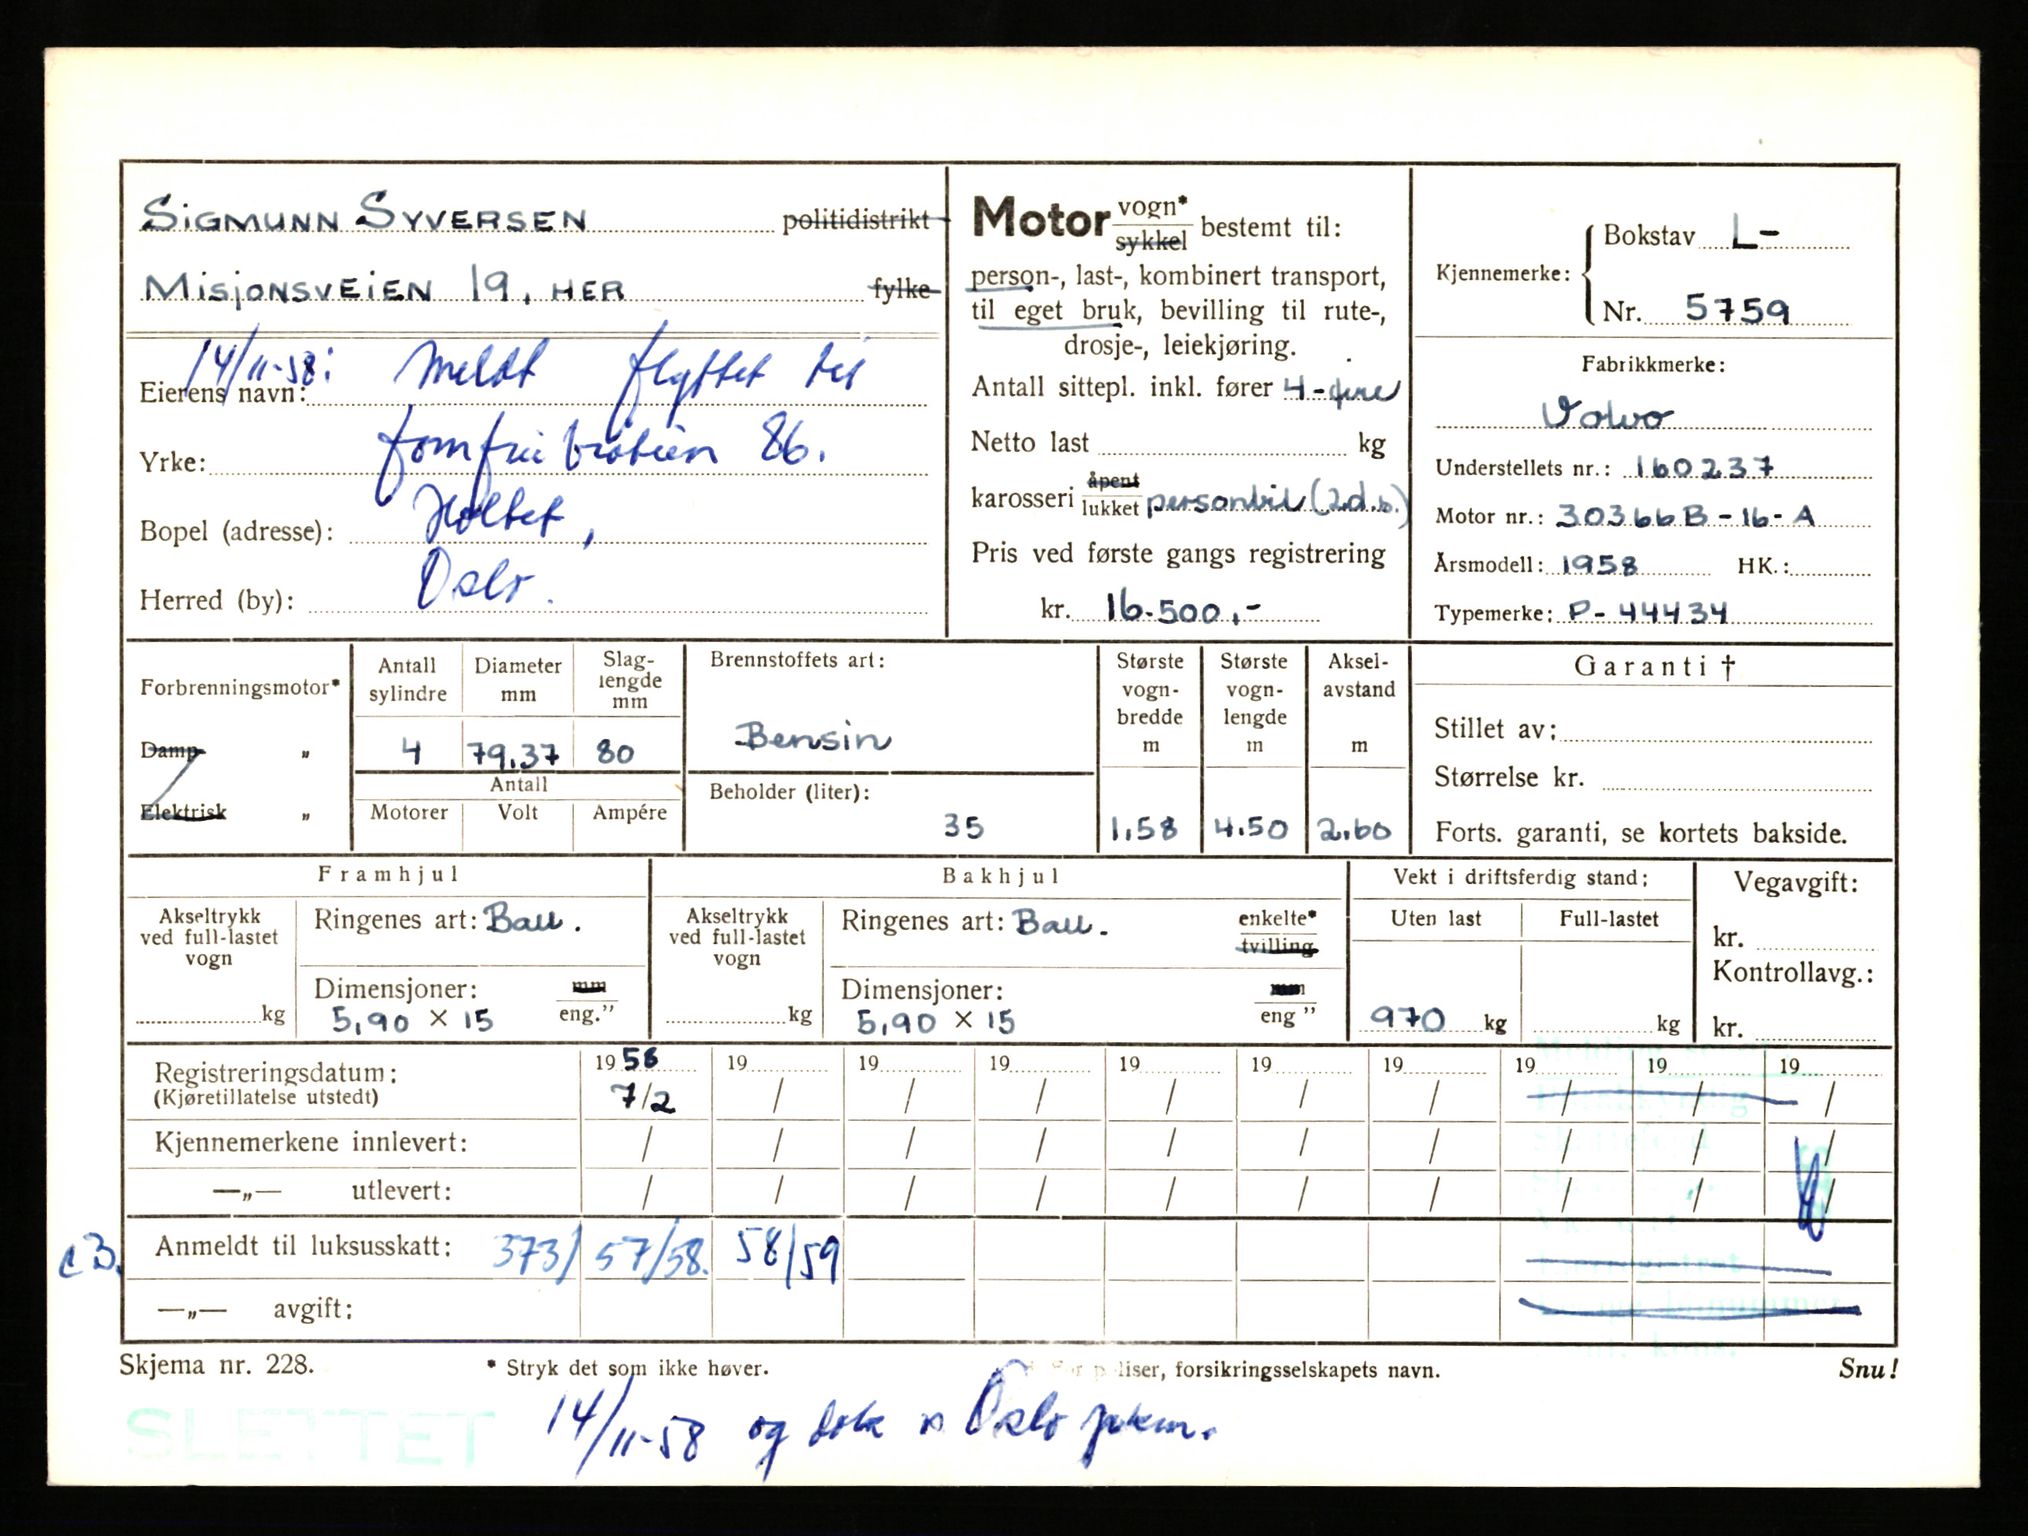 SIGMUNN SYVERSEN politidistrikt
MISJONSVEIEN 19, HER fylke
14/11-58: Meldt flyttet til
Eierens navn:
Yrke: 86.
Bopel (adresse): Holtet,
Herred (by): Oslo.
Motor vogn* sykkel bestemt til:
person-, last-, kombinert transport,
til eget bruk, bevilling til rute-,
drosje-, leiekjøring.
Antall sittepl. inkl. fører 4-fire
Netto last kg
karosseri åpent lukket personbil (2d.s.)
Pris ved første gangs registrering
kr. 16.500,-
Kjennemerke: Bokstav L-
Nr. 5759
Fabrikkmerke:
Volvo
Understellets nr.: 160237
Motor nr.: 30366 B-16-A
Årsmodell: 1958 HK.:
Typemerke: P-44434
Forbrenningsmotor*
Damp "
Elektrisk "
Antall sylindre
Diameter mm
Slaglengde mm
4 79,37 80
Antall
Motorer Volt Ampére
Brennstoffets art:
Bensin
Beholder (liter):
35
Største vognbredde m
1,58
Største vognlengde m
4.50
Akselavstand m
2.60
Garanti †
Stillet av:
Størrelse kr.
Forts. garanti, se kortets bakside.
Framhjul
Akseltrykk ved full-lastet vogn
kg
Ringenes art: Ball.
Dimensjoner: mm
5,90 × 15 eng."
Bakhjul
Akseltrykk ved full-lastet vogn
kg
Ringenes art: Ball. enkelte* tvilling
Dimensjoner: mm
5,90 × 15 eng "
Vekt i driftsferdig stand:
Uten last Full-lastet
970 kg kg
Vegavgift:
kr.
Kontrollavg.:
kr.
Registreringsdatum: 1958 19 19 19 19 19 19 19 19 19
(Kjøretillatelse utstedt) 7/2 / / / / / / / / /
Kjennemerkene innlevert: / / / / / / / / / /
—„— utlevert: / / / / / / / / / /
Anmeldt til luksusskatt: 373/ 57/58. 58/59
—„— avgift:
Skjema nr. 228. * Stryk det som ikke høver. forsikringsselskapets navn. Snu!
SLETTET
14/11-58 og Oslo